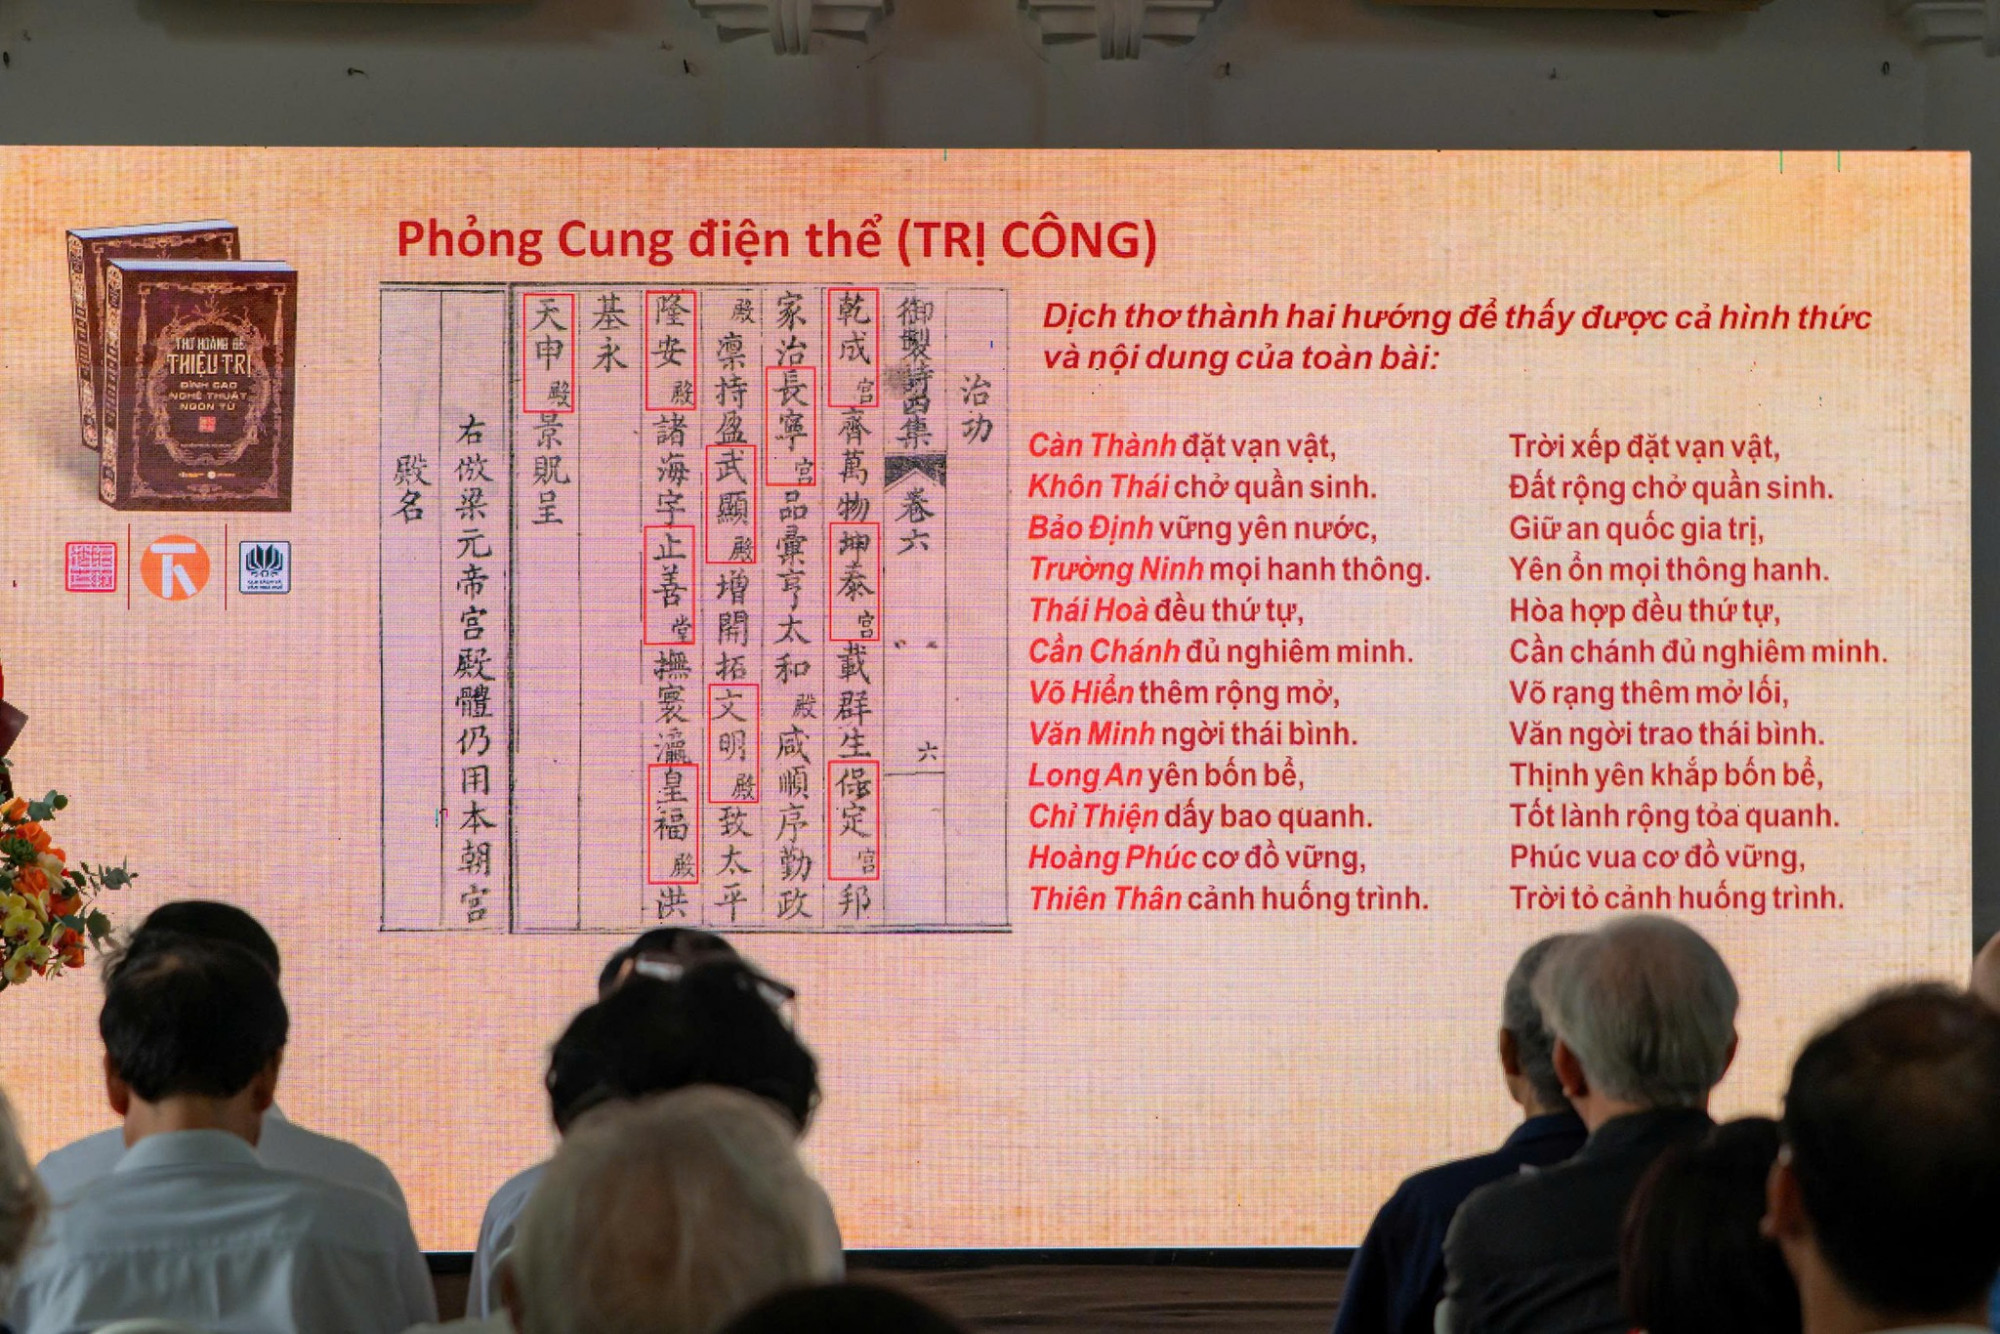 Phỏng Cung điện thể (TRỊ CÔNG)
THƠ HOÀNG ĐẾ
THIỆU TRỊ
ĐỈNH CAO
NGHỆ THUẬT
NGÔN TỪ
治功
御製詩四集 卷六 六
乾成宮齊萬物坤泰宮載群生保定宮邦
家治長寧宮品彙亨太和殿咸順序勤政
殿凛持盈武顯殿增開拓文明殿致太平
隆安殿諸海宇止善堂撫寰瀛皇福殿洪
基永
天申殿景貺呈
右倣梁元帝宮殿體仍用本朝宮
殿名
Dịch thơ thành hai hướng để thấy được cả hình thức
và nội dung của toàn bài:
Càn Thành đặt vạn vật,
Khôn Thái chở quần sinh.
Bảo Định vững yên nước,
Trường Ninh mọi hanh thông.
Thái Hoà đều thứ tự,
Cần Chánh đủ nghiêm minh.
Võ Hiển thêm rộng mở,
Văn Minh ngời thái bình.
Long An yên bốn bể,
Chỉ Thiện dấy bao quanh.
Hoàng Phúc cơ đồ vững,
Thiên Thân cảnh huống trình.
Trời xếp đặt vạn vật,
Đất rộng chở quần sinh.
Giữ an quốc gia trị,
Yên ổn mọi thông hanh.
Hòa hợp đều thứ tự,
Cần chánh đủ nghiêm minh.
Võ rạng thêm mở lối,
Văn ngời trao thái bình.
Thịnh yên khắp bốn bể,
Tốt lành rộng tỏa quanh.
Phúc vua cơ đồ vững,
Trời tỏ cảnh huống trình.